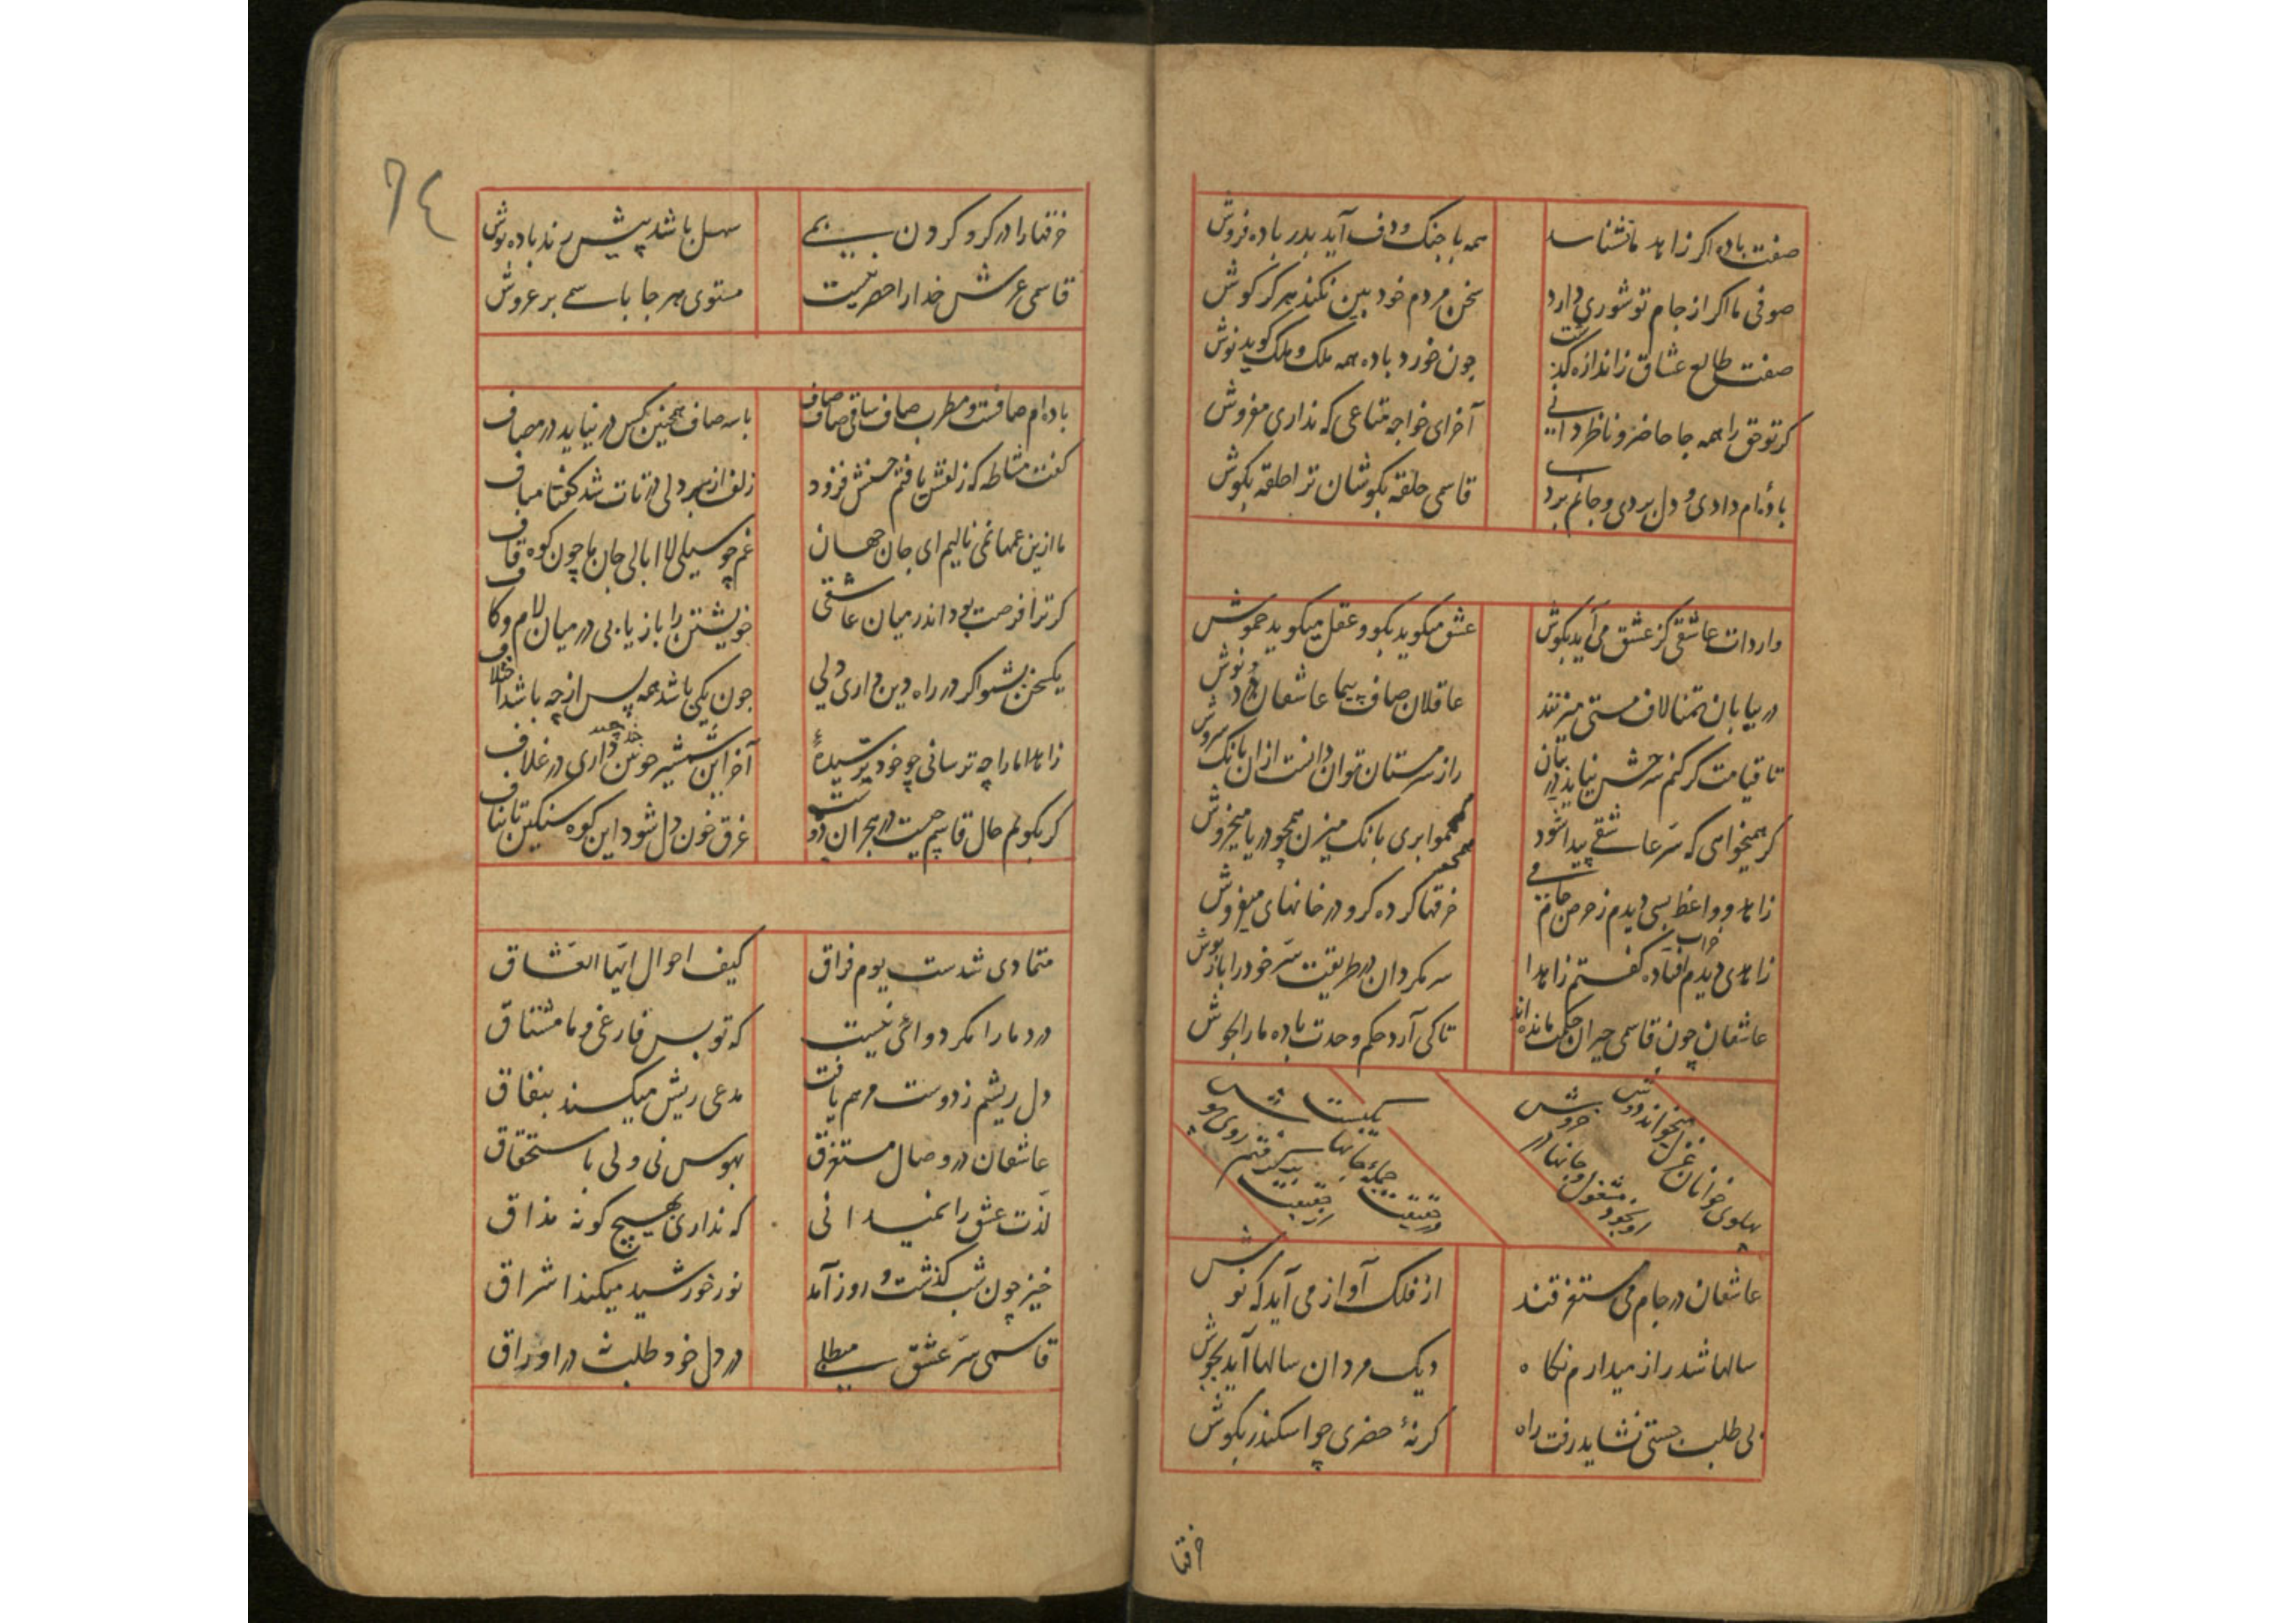 صفت باده اکر زاهد ما نشناسد همه با جنک و دف آید بدر باده فروش
صوفی ما اکر از جام تو شوری دارد سخن مردم خود بین نکند هرکز کوش
صفت طالع عشاق ز اندازه کذشت جون خورد باده همه ملک و ملک کوید نوش
کر تو حق را همه جا حاضر و ناظر دانی آخر ای خواجه متاعی که نداری مفروش
بادۀ ام دادی و دل بردی و جانم برد قاسمی حلقه بکوشان ترا حلقه بکوش
واردات عاشقی کز عشق می آید بکوش عشق میکوید بکو و عقل میکوید خموش
در بیابان تمنا لاف مستی میزنند عاقلان صاف پیما عاشقان درد نوش
تا قیامت کر کنم شرحش نیاید در بیان راز سرمستان توان دانست از ان بانک سروش
کر همیخواهی که سر عاشقی پیدا شود همچو ابری بانک میزن همچو دریا میخروش
زاهد و واعظ بسی دیدم ز حرص جام می خرقها کرده کرو در خانهای میفروش
زاهدی دیدم خراب افتاده کفتم زاهدا سر مکردان در طریقت سر خود را باز پوش
عاشقان چون قاسمی حیران حکمت مانده اند تا کی آرد حکم وحدت باده ما را بجوش
پهلوی خوانان غزل میخواند دوش
او بخود مشغول و جانها در خروش
جمله جانها یکیست
در حقیقت از حقیقت
عاشقان در جام می مستغرقند از فلک آواز می آید که نوش
سالها شد راز میدارم نکاه دیک مردان سالها آید بجوش
بی طلب جستی نشاید رفت راه کر نۀ خضری چو اسکندر بکوش
خرقها
٦٤
خرقها را در کرو کردن بمی سهل باشد پیش رند باده نوش
قاسمی عرش خدا را حصر نیست مستوی هر جا باسمی بر عروش
باده ام صافست و مطرب صاف ساقی صاف صاف با سه صاف همچنین کس در نیاید در مصاف
کفت مشاطه که زلفش بافتم حسنش فزود زلف از سر دلی در تاب شد کفتا مباف
ما ازین غمها نمی نالیم ای جان جهان غم چو سیلی لا ابالی جان ما چون کوه قاف
کر ترا فرصت بود اندر میان عاشقی خویشتن را باز یابی در میان لام و کاف
یکسخن بشنو اکر در راه دین داری دلی جون یکی باشد همه پس از چه باشد اختلاف
زاهدا ما را چه ترسانی چو خود ترسیدۀ آخر این شمشیر چوبین چند داری در غلاف
کر بکویم حال قاسم جیست در هجران دوست غرق خون دل شود این کوه سنکین تا بناف
متمادی شدست یوم فراق کیف احوال ایها العشاق
درد ما را مکر دوائی نیست که تو بس فارغی و ما مشتاق
دل ریشم ز دوست مرهم یافت مدعی ریش میکند بنفاق
عاشقان در وصال مستغرق بهوس نی ولی باستحقاق
لذت عشق را نمیدانی که نداری بهیچ کونه مذاق
خیز چون شب کذشت و روز آمد نور خورشید میکند اشراق
قاسمی سر عشق می طلبی در دل خود طلب نه در اوراق